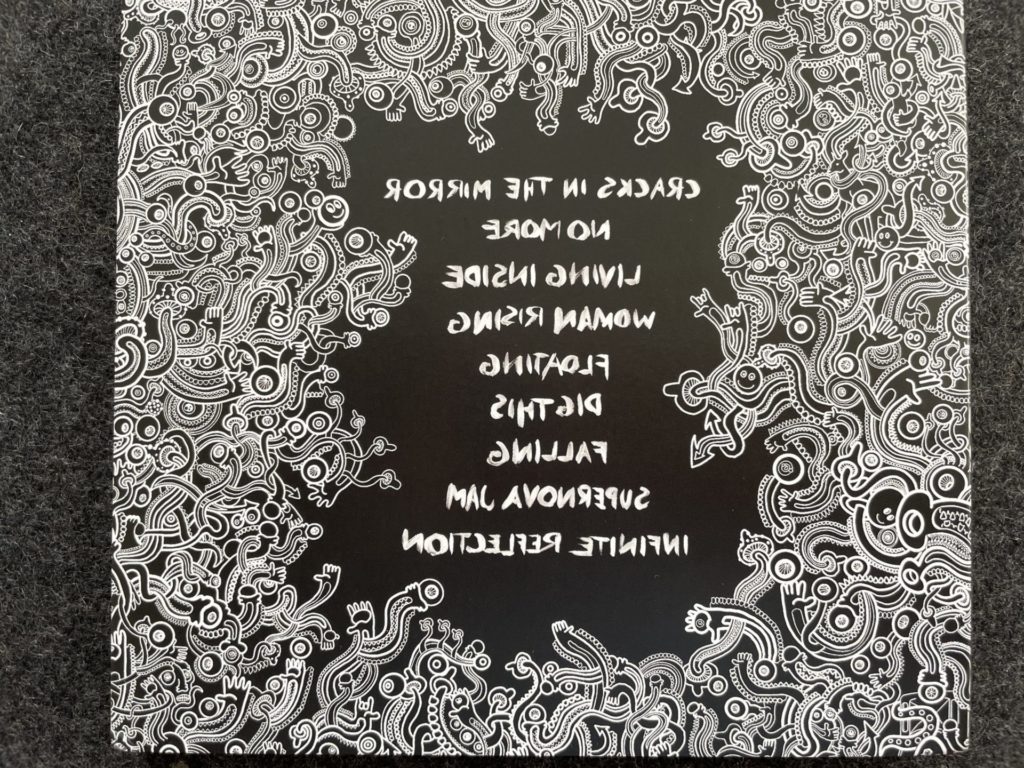 CRACKS IN THE MIRROR
NO MORE
LIVING INSIDE
WOMAN RISING
FLOATING
DIG THIS
FALLING
SUPERNOVA JAM
INFINITE REFLECTION